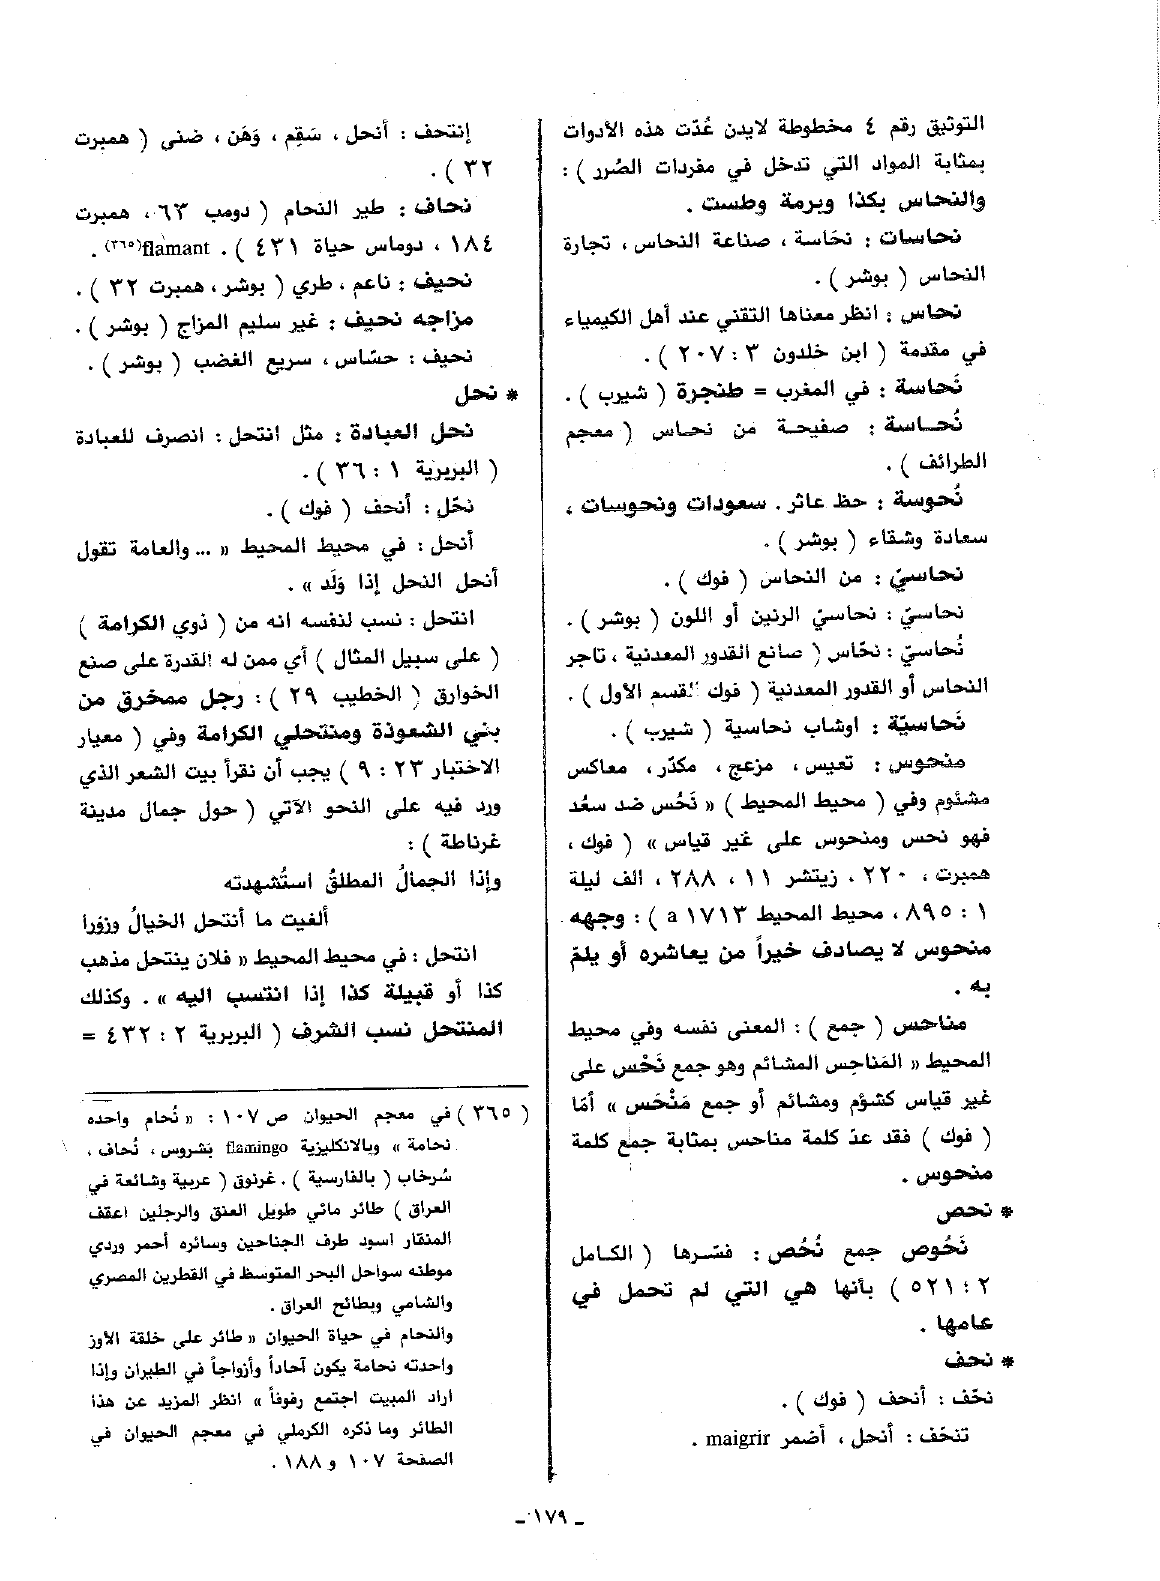 التوثيق رقم ٤ مخطوطة لايدن عُدّت هذه الأدوات
بمثابة المواد التي تدخل في مفردات الصُرر ) :
والنحاس بكذا وبرمة وطست .
نحاسات : نحَاسة ، صناعة النحاس ، تجارة
النحاس ( بوشر ) .
نحاس : انظر معناها التقني عند أهل الكيمياء
في مقدمة ( ابن خلدون ٣ : ٢٠٧ ) .
نَحاسة : في المغرب = طنجرة ( شيرب ) .
نُحـاسة : صفيحـة من نحاس ( معجم
الطرائف ) .
نُحوسة : حظ عاثر . سعودات ونحوسات ،
سعادة وشقاء ( بوشر ) .
نحاسيّ : من النحاس ( فوك ) .
نحاسيّ : نحاسيّ الرنين أو اللون ( بوشر ) .
نُحاسيّ : نحّاس ( صانع القدور المعدنية ، تاجر
النحاس أو القدور المعدنية ( فوك القسم الأول ) .
نَحاسيّة : اوشاب نحاسية ( شيرب ) .
منحوس : تعيس ، مزعج ، مكدّر ، معاكس
مشئوم وفي ( محيط المحيط ) « نَحُس ضد سعُد
فهو نحس ومنحوس على غير قياس » ( فوك ،
همبرت ، ٢٢٠ ، زيتشر ١١ ، ٢٨٨ ، الف ليلة
١ : ٨٩٥ ، محيط المحيط ١٧١٣ a ) : وجهه
منحوس لا يصادف خيراً من يعاشره أو يلمّ
به .
مناحس ( جمع ) : المعنى نفسه وفي محيط
المحيط « المَناحِس المشائم وهو جمع نَحْس على
غير قياس كشؤم ومشائم أو جمع مَنْحَس » أمّا
( فوك ) فقد عدّ كلمة مناحس بمثابة جمع كلمة
منحوس .
* نحص
نَحُوص جمع نُحُص : فسّرها ( الكـامل
٢ : ٥٢١ ) بأنها هي التي لم تحمل في
عامها .
* نحف
نحّف : أنحف ( فوك ) .
تنحّف : أنحل ، أضمر maigrir .
إنتحف : أنحل ، سَقِم ، وَهَن ، ضنى ( همبرت
٣٢ ) .
نحاف : طير النحام ( دومب ٦٣ ، همبرت
١٨٤ ، دوماس حياة ٤٣١ ) . flamant(٣٦٥) .
نحيف : ناعم ، طري ( بوشر ، همبرت ٣٢ ) .
مزاجه نحيف : غير سليم المزاج ( بوشر ) .
نحيف : حسّاس ، سريع الغضب ( بوشر ) .
* نحل
نحل العبادة : مثل انتحل : انصرف للعبادة
( البربرية ١ : ٣٦ ) .
نحّل : أنحف ( فوك ) .
أنحل : في محيط المحيط « ... والعامة تقول
أنحل النحل إذا وَلّد » .
انتحل : نسب لنفسه انه من ( ذوي الكرامة )
( على سبيل المثال ) أي ممن له القدرة على صنع
الخوارق ( الخطيب ٢٩ ) : رجل ممخرق من
بني الشعوذة ومنتحلي الكرامة وفي ( معيار
الاختبار ٢٣ : ٩ ) يجب أن نقرأ بيت الشعر الذي
ورد فيه على النحو الآتي ( حول جمال مدينة
غرناطة ) :
وإذا الجمالُ المطلقُ استُشهدته
ألفيت ما أنتحل الخيالُ وزوّرا
انتحل : في محيط المحيط « فلان ينتحل مذهب
كذا أو قبيلة كذا إذا انتسب اليه » . وكذلك
المنتحل نسب الشرف ( البربرية ٢ : ٤٣٢ =
( ٣٦٥ ) في معجم الحيوان ص ١٠٧ : « نُحام واحده
نحامة » وبالانكليزية flamingo بَشروس ، نُحاف ،
سُرخاب ( بالفارسية ) . غرنوق ( عربية وشائعة في
العراق ) طائر مائي طويل العنق والرجلين اعقف
المنقار اسود طرف الجناحين وسائره أحمر وردي
موطنه سواحل البحر المتوسط في القطرين المصري
والشامي وبطائح العراق .
والنحام في حياة الحيوان « طائر على خلقة الأوز
واحدته نحامة يكون آحاداً وأزواجاً في الطيران وإذا
اراد المبيت اجتمع رفوفاً » انظر المزيد عن هذا
الطائر وما ذكره الكرملي في معجم الحيوان في
الصفحة ١٠٧ و ١٨٨ .
ـ ١٧٩ ـ